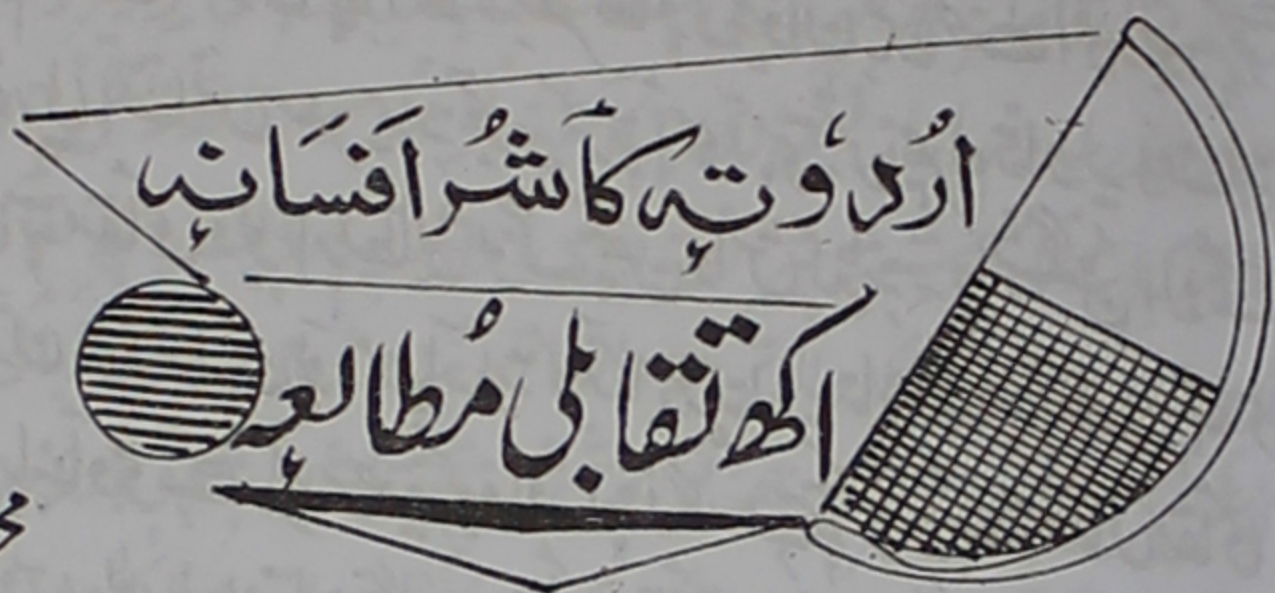 اُردوٗ تہٕ کٲشُر افسانہٕ
اکھ تقابلی مُطالعہٕ